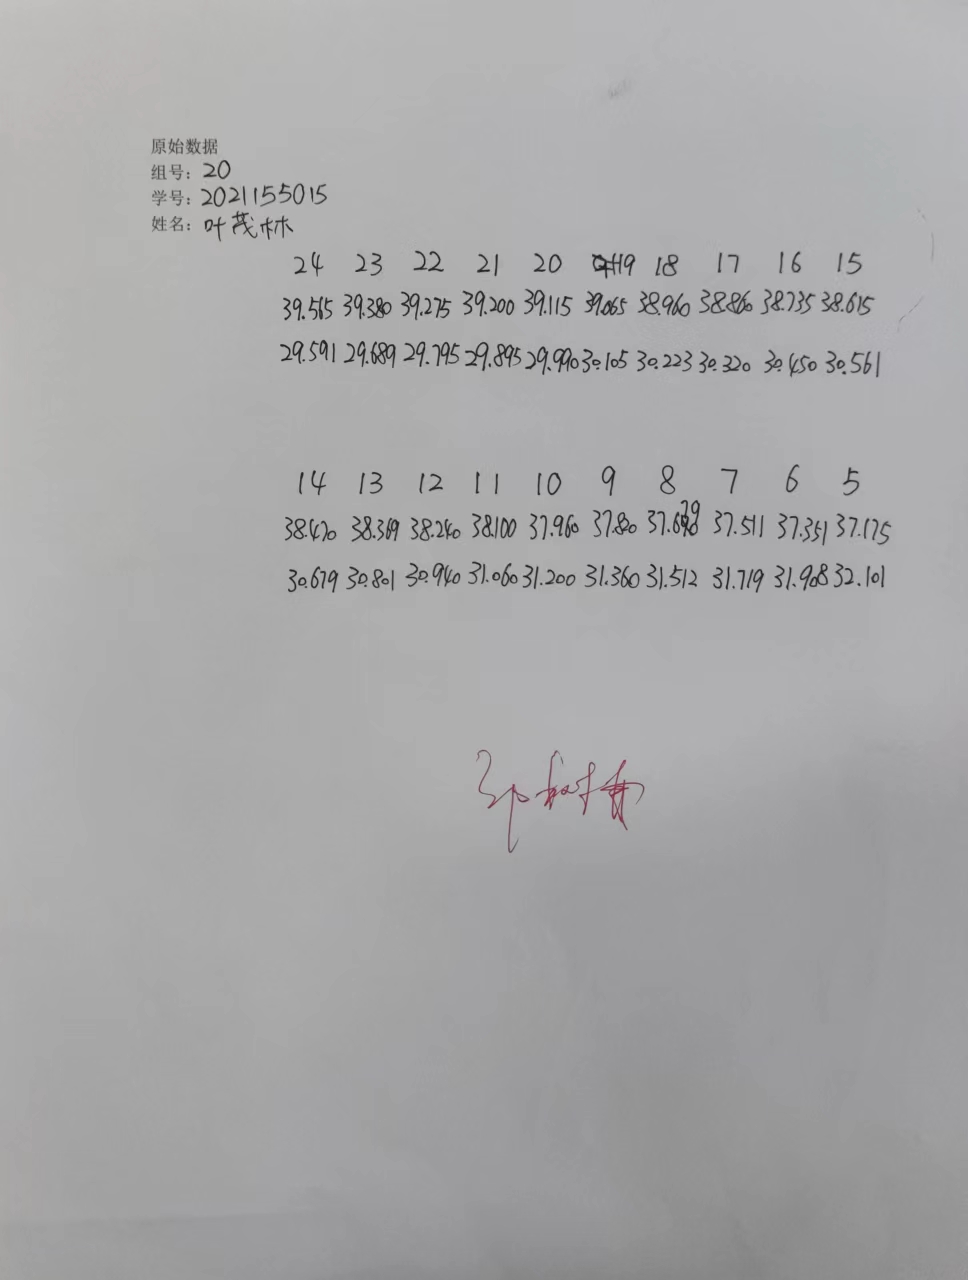 原始数据
组号: 20
学号: 2021155015
姓名: 叶茂林
24 23 22 21 20 19 18 17 16 15
39.565 39.380 39.275 39.200 39.115 39.065 38.960 38.860 38.735 38.615
29.591 29.689 29.795 29.895 29.990 30.105 30.223 30.320 30.450 30.561
14 13 12 11 10 9 8 7 6 5
38.470 38.369 38.240 38.100 37.960 37.820 37.679 37.511 37.351 37.175
30.679 30.801 30.940 31.060 31.200 31.360 31.512 31.719 31.908 32.101